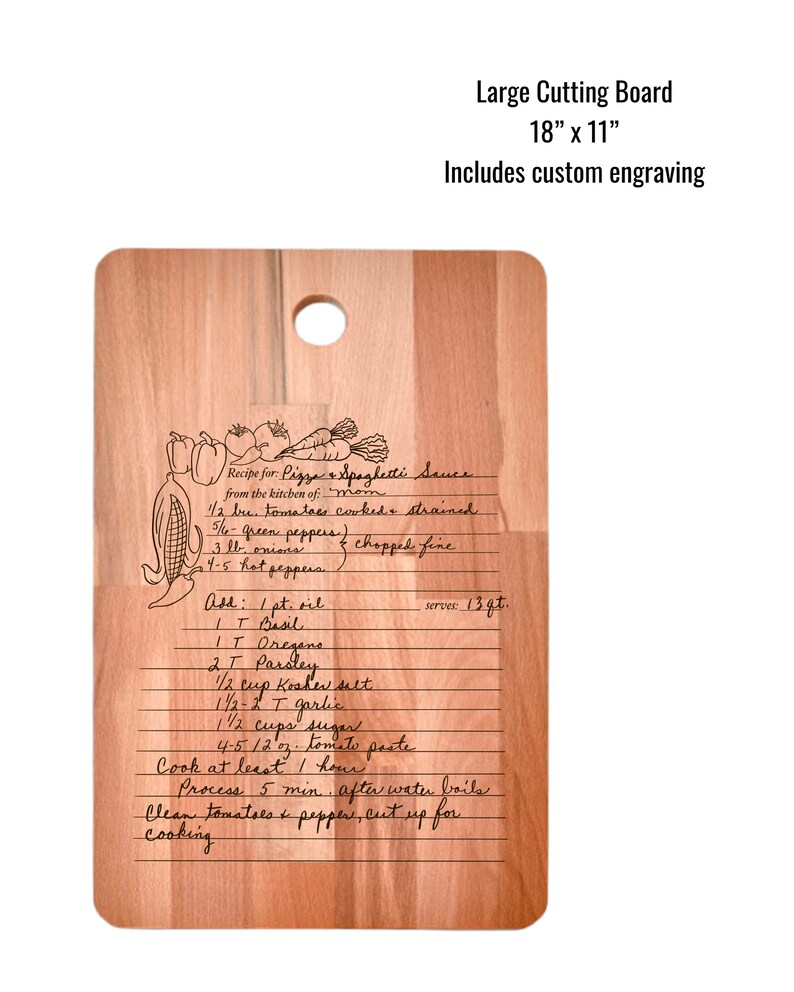 Large Cutting Board
18” x 11”
Includes custom engraving
Recipe for: Pizza & Spaghetti Sauce
from the kitchen of: mom
1/2 bu. tomatoes cooked & strained
5/6 - green peppers
3 lb. onions } chopped fine
4-5 hot peppers
Add: 1 pt. oil serves: 13 qt.
1 T Basil
1 T Oregano
2 T Parsley
1/2 cup Kosher salt
1 1/2-2 T garlic
1 1/2 cups sugar
4-5 12 oz. tomato paste
Cook at least 1 hour
Process 5 min. after water boils
Clean tomatoes & pepper, cut up for
cooking